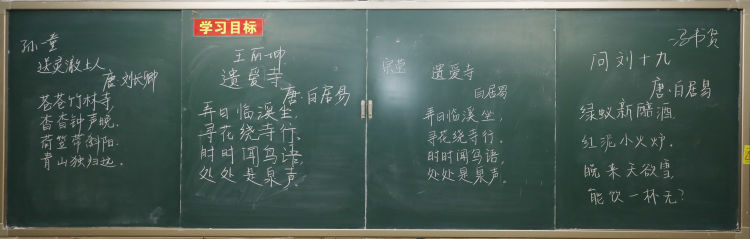 送灵澈上人
唐 刘长卿
苍苍竹林寺,
杳杳钟声晚.
荷笠带斜阳.
青山独归远.
学习目标
王丽坤
遗爱寺
唐·白居易
弄日临溪坐,
寻花绕寺行.
时时闻鸟语,
处处是泉声.
遗爱寺
白居易
弄日临溪坐,
寻花绕寺行.
时时闻鸟语,
处处是泉声.
问刘十九
唐·白居易
绿蚁新醅酒.
红泥小火炉.
晚来天欲雪.
能饮一杯无?